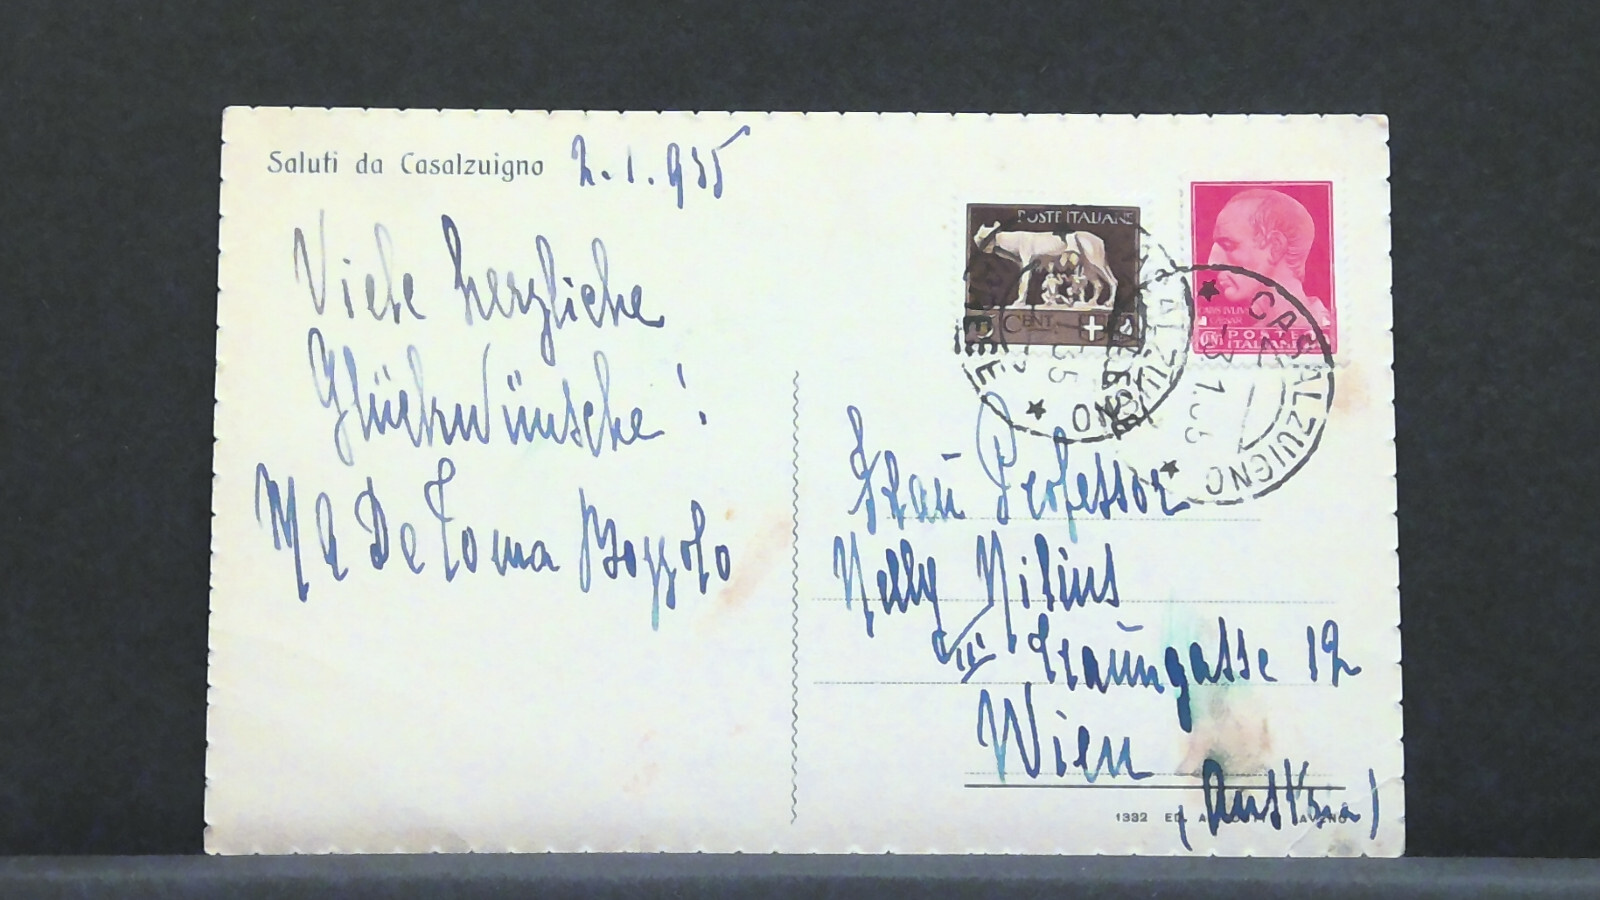 Saluti da Casalzuigno 2.1.935
Viele herzliche
Glückwünsche!
M A De Toma Bozzolo
POSTE ITALIANE
CENT.
POSTE
ITALIANE
CASALZUIGNO
Frau Professor
Nelly Nilius
VIII Traungasse 12
Wien
(Austria)
1332 ED.